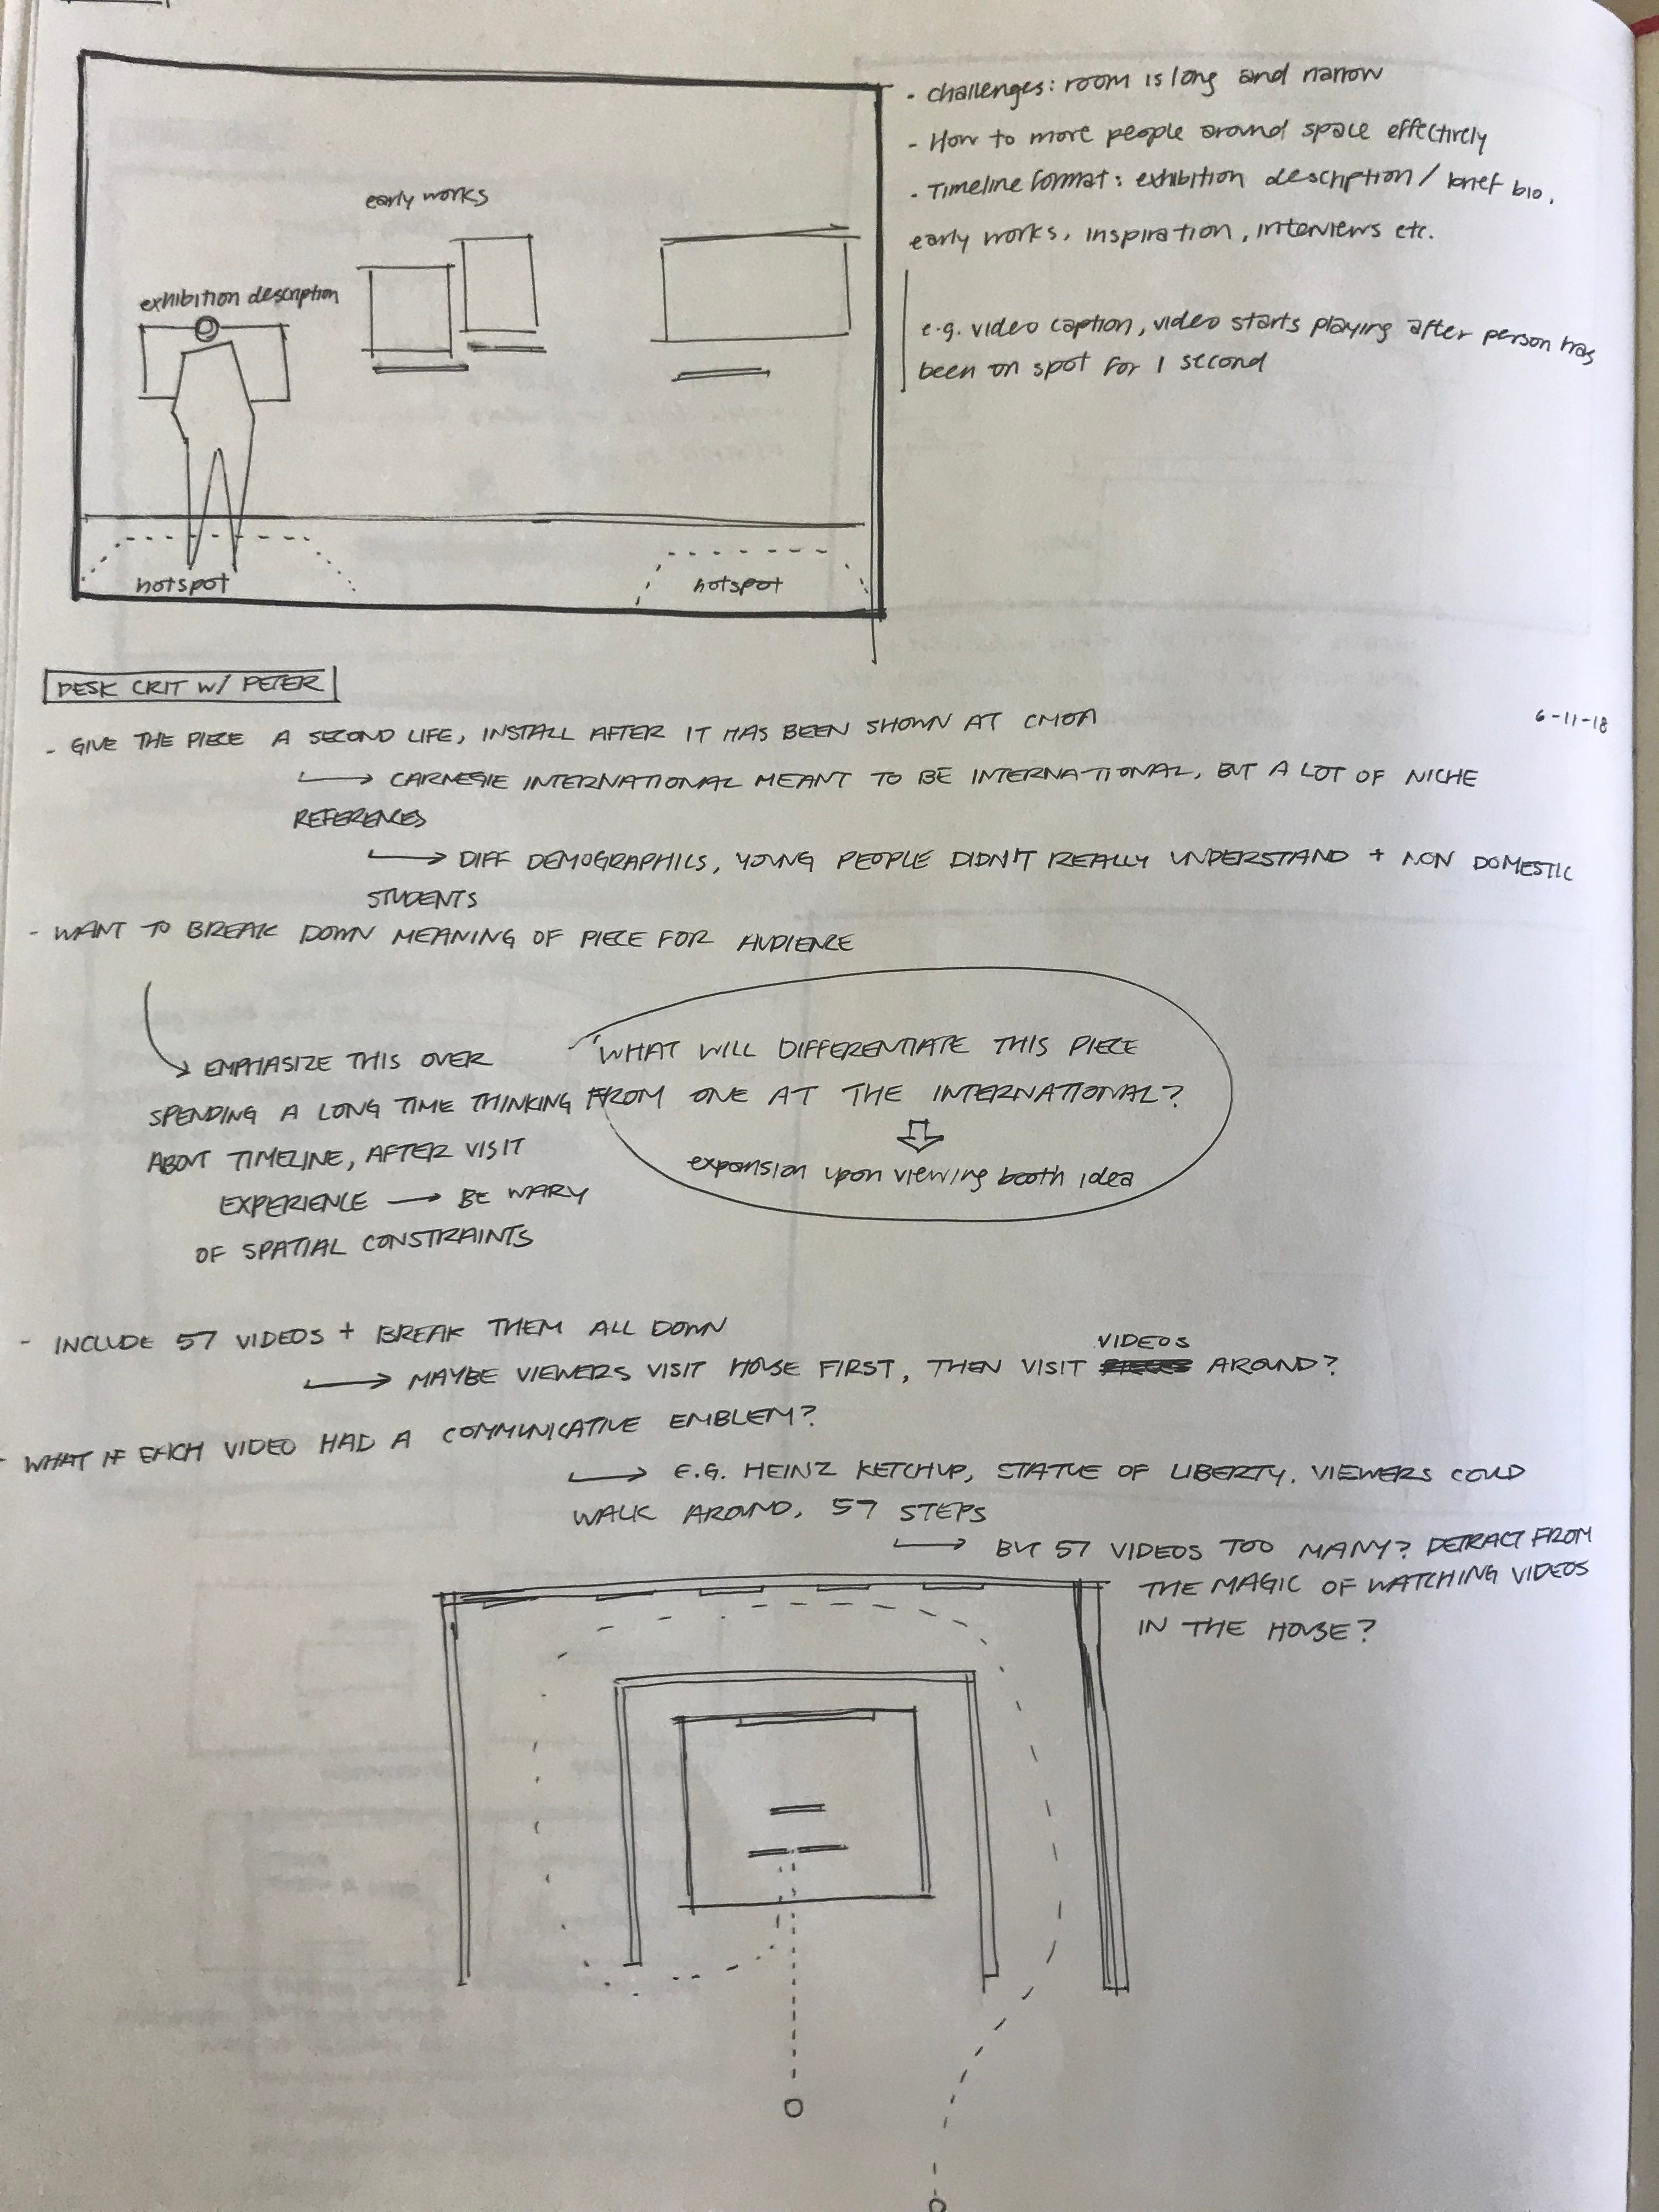 early works
exhibition description
hotspot
hotspot
- challenges: room is long and narrow
- How to move people around space effectively
- Timeline format: exhibition description / brief bio,
early works, inspiration, interviews etc.
e.g. video caption, video starts playing after person has
been on spot for 1 second
DESK CRIT W/ PETER
6-11-18
- GIVE THE PIECE A SECOND LIFE, INSTALL AFTER IT HAS BEEN SHOWN AT CMOA
→ CARNEGIE INTERNATIONAL MEANT TO BE INTERNATIONAL, BUT A LOT OF NICHE
REFERENCES
→ DIFF DEMOGRAPHICS, YOUNG PEOPLE DIDN'T REALLY UNDERSTAND + NON DOMESTIC
STUDENTS
- WANT TO BREAK DOWN MEANING OF PIECE FOR AUDIENCE
→ EMPHASIZE THIS OVER
SPENDING A LONG TIME THINKING
ABOUT TIMELINE, AFTER VISIT
EXPERIENCE → BE WARY
OF SPATIAL CONSTRAINTS
WHAT WILL DIFFERENTIATE THIS PIECE
FROM ONE AT THE INTERNATIONAL?
expansion upon viewing booth idea
- INCLUDE 57 VIDEOS + BREAK THEM ALL DOWN
→ MAYBE VIEWERS VISIT HOUSE FIRST, THEN VISIT VIDEOS AROUND?
- WHAT IF EACH VIDEO HAD A COMMUNICATIVE EMBLEM?
→ E.G. HEINZ KETCHUP, STATUE OF LIBERTY. VIEWERS COULD
WALK AROUND, 57 STEPS
→ BUT 57 VIDEOS TOO MANY? DETRACT FROM
THE MAGIC OF WATCHING VIDEOS
IN THE HOUSE?